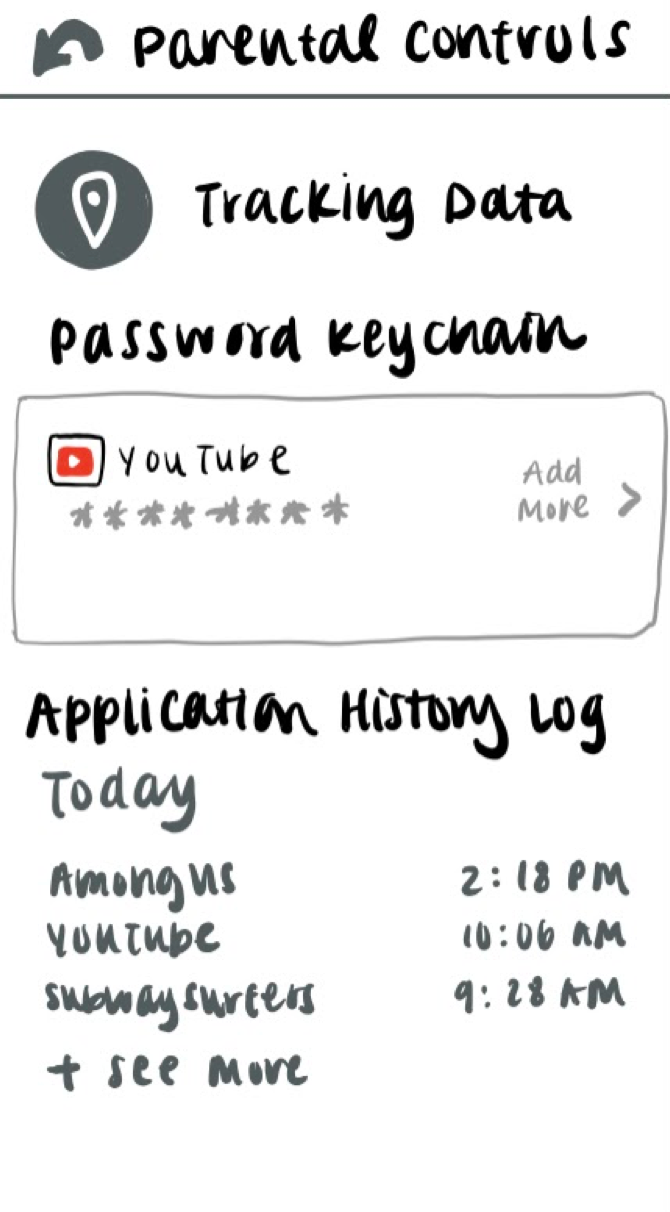 Parental Controls
Tracking Data
Password Keychain
YouTube
********
Add
More >
Application History Log
Today
Among Us 2:18 PM
YouTube 10:06 AM
Subway Surfers 9:28 AM
+ see more